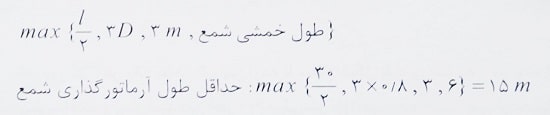 max {l/۲ , ۳D , ۳ m , طول خمشی شمع}
حداقل طول آرماتورگذاری شمع : max {۳۰/۲ , ۳×۰/۸ , ۳ , ۶} = ۱۵ m